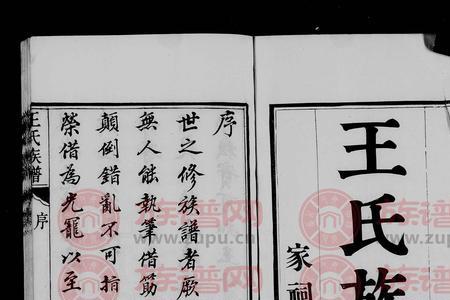 王氏族
家祠
序
世之修族譜者厥
無人能執筆借筯
顛倒錯亂不可指
榮借為光寵以至
王氏族譜
序
族谱网
www.zupu.cn